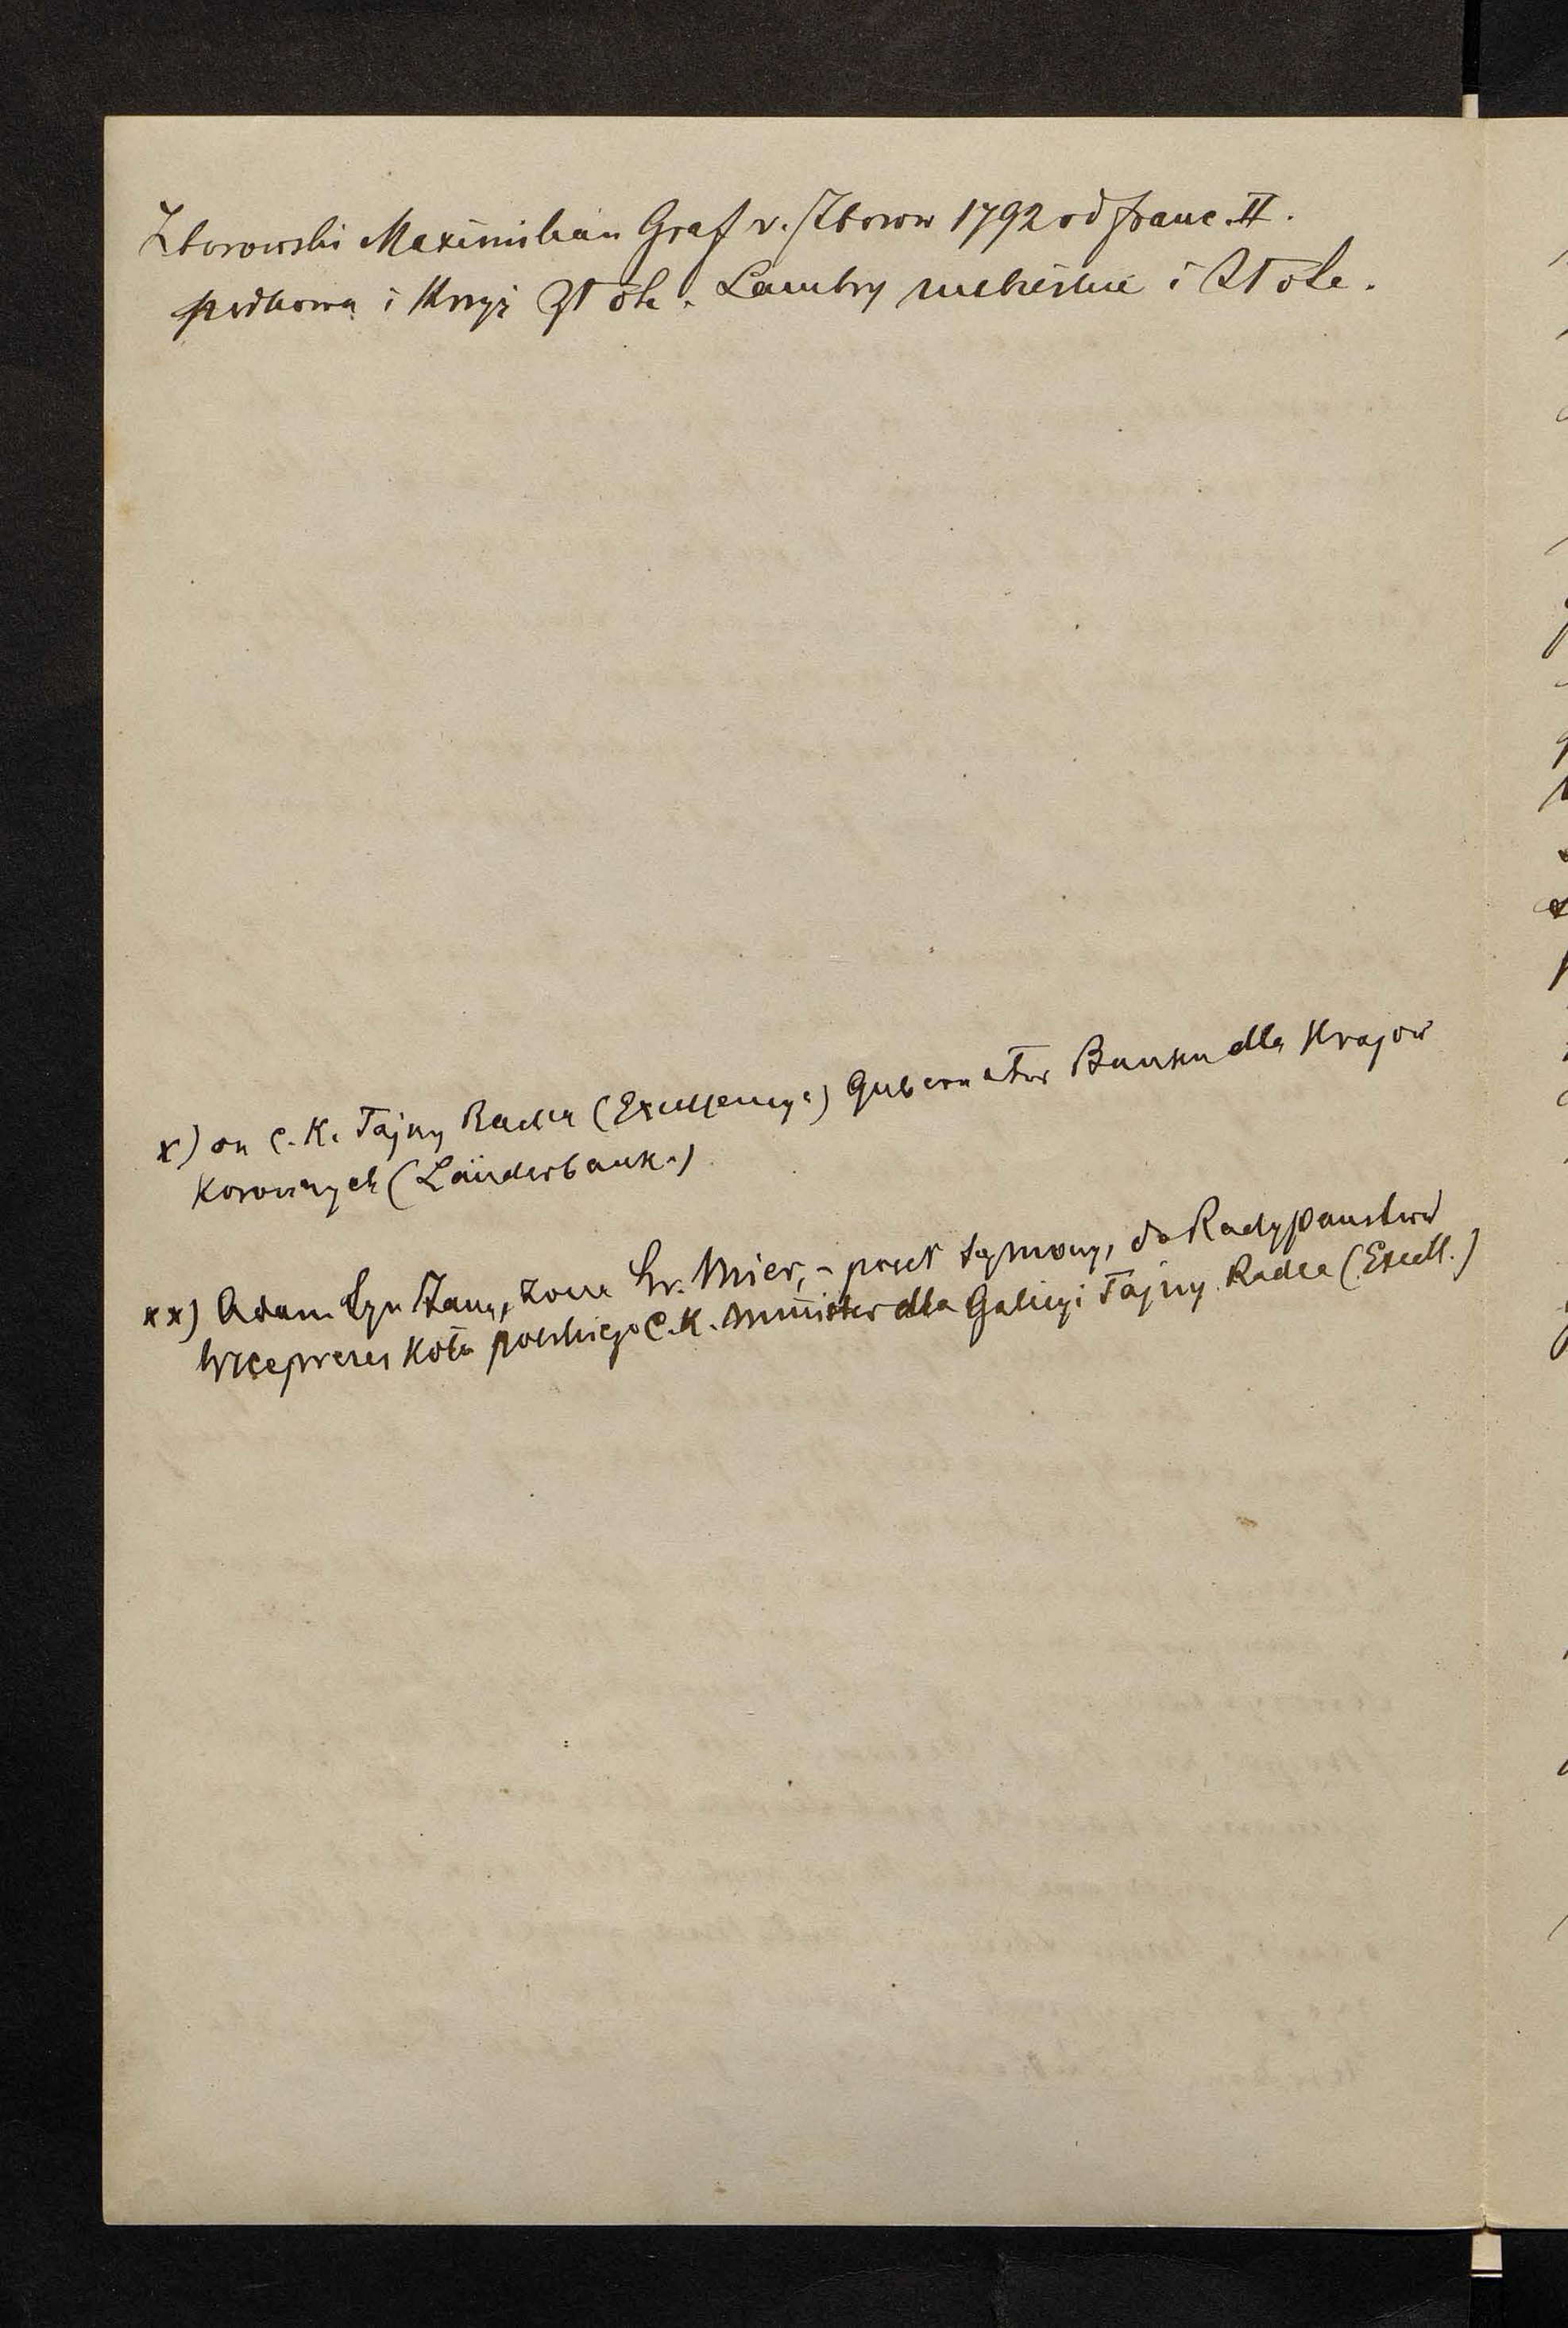 Zborowski Maximilian Graf v. Zborow 1792 od Franc. II.
podkowa i Krzyż złote. Lambry niebieskie i złote.
x) on C. K. Tajny Radca (Excellencya) Gubernator Banku dla Krajow
Koronnych (Länderbank.)
xx) Adam Syn Zany, żona hr. Mier, - poseł sejmowy, do Rady Panstwa
Wiceprezes Koła polskiego C. K. Minister dla Galicyi Tajny Radca (Excell.)